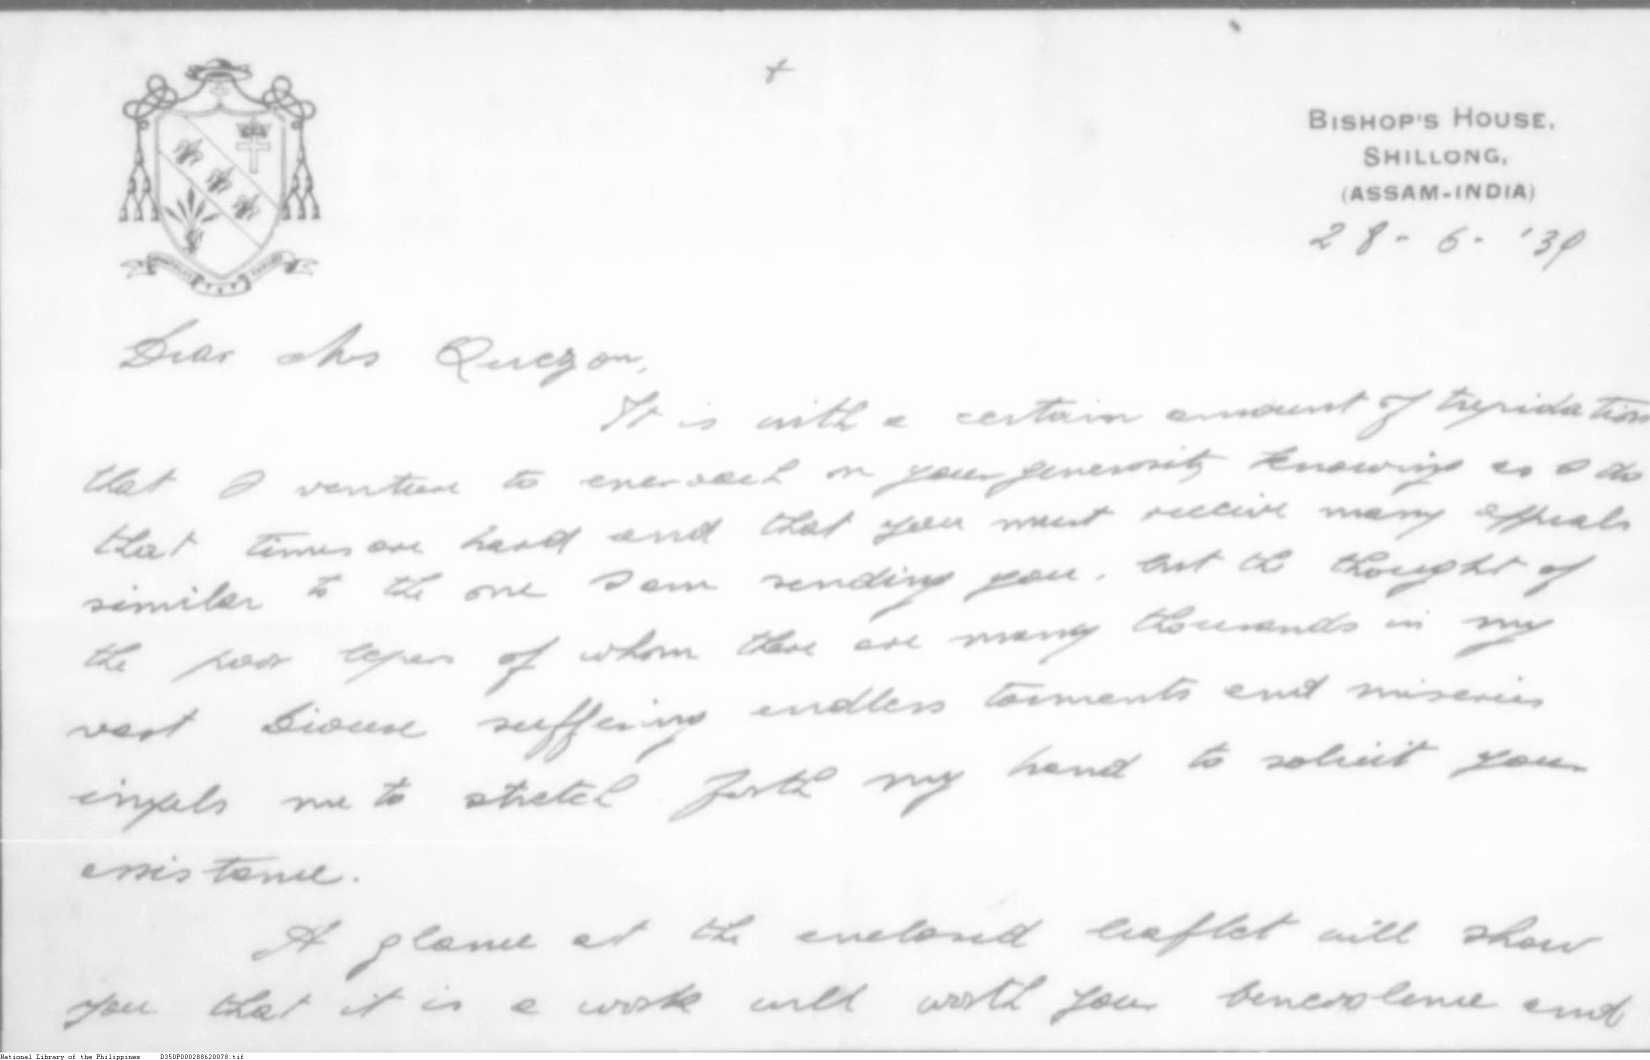 +
BISHOP'S HOUSE,
SHILLONG,
(ASSAM-INDIA)
28-6-'39
Dear Mrs Quezon,
It is with a certain amount of trepidation
that I venture to encroach on your generosity knowing as I do
that times are hard and that you must receive many appeals
similar to the one I am sending you, but the thought of
the poor lepers of whom there are many thousands in my
vast Diocese suffering endless torments and miseries
impels me to stretch forth my hand to solicit your
assistance.
A glance at the enclosed leaflet will show
you that it is a work well worth your benevolence and
National Library of the Philippines D350P000288620078.tif